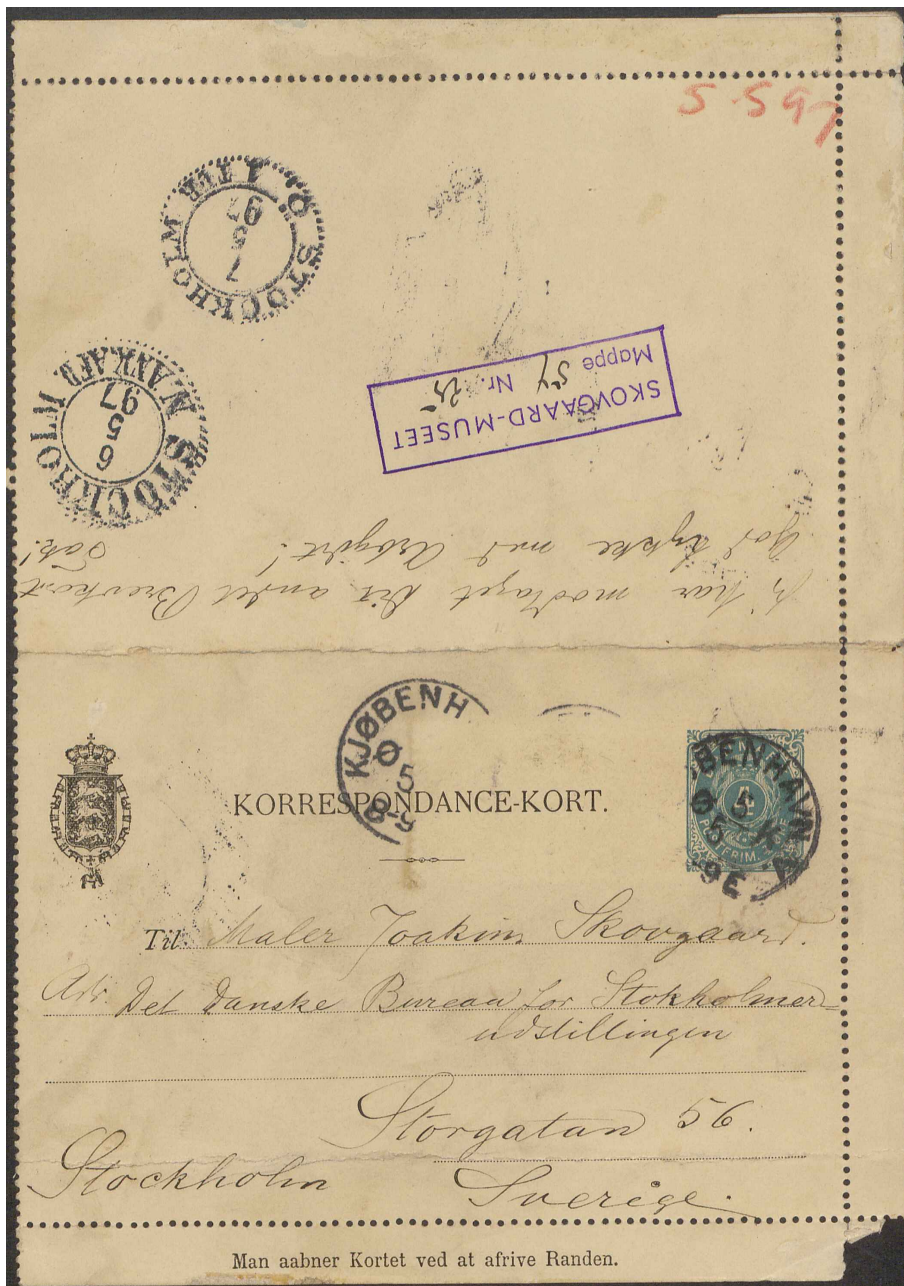 5 5 97
Ö. STOCKHOLM 1 TUR
7
5
97
STOCKHOLM
6
5
97
SKOVGAARD-MUSEET
Mappe 57 Nr. 25
Vi har modtaget Dit andet Brevkort
Tak!
God Lykke med Arbejdet!
KJØBENH
5
KORRESPONDANCE-KORT.
BENHAVN
Til Maler Joakim Skovgaard.
Adr. Det danske Bureau for Stokholmer-
udstillingen
Storgatan 56.
Stockholm
Sverige.
Man aabner Kortet ved at afrive Randen.